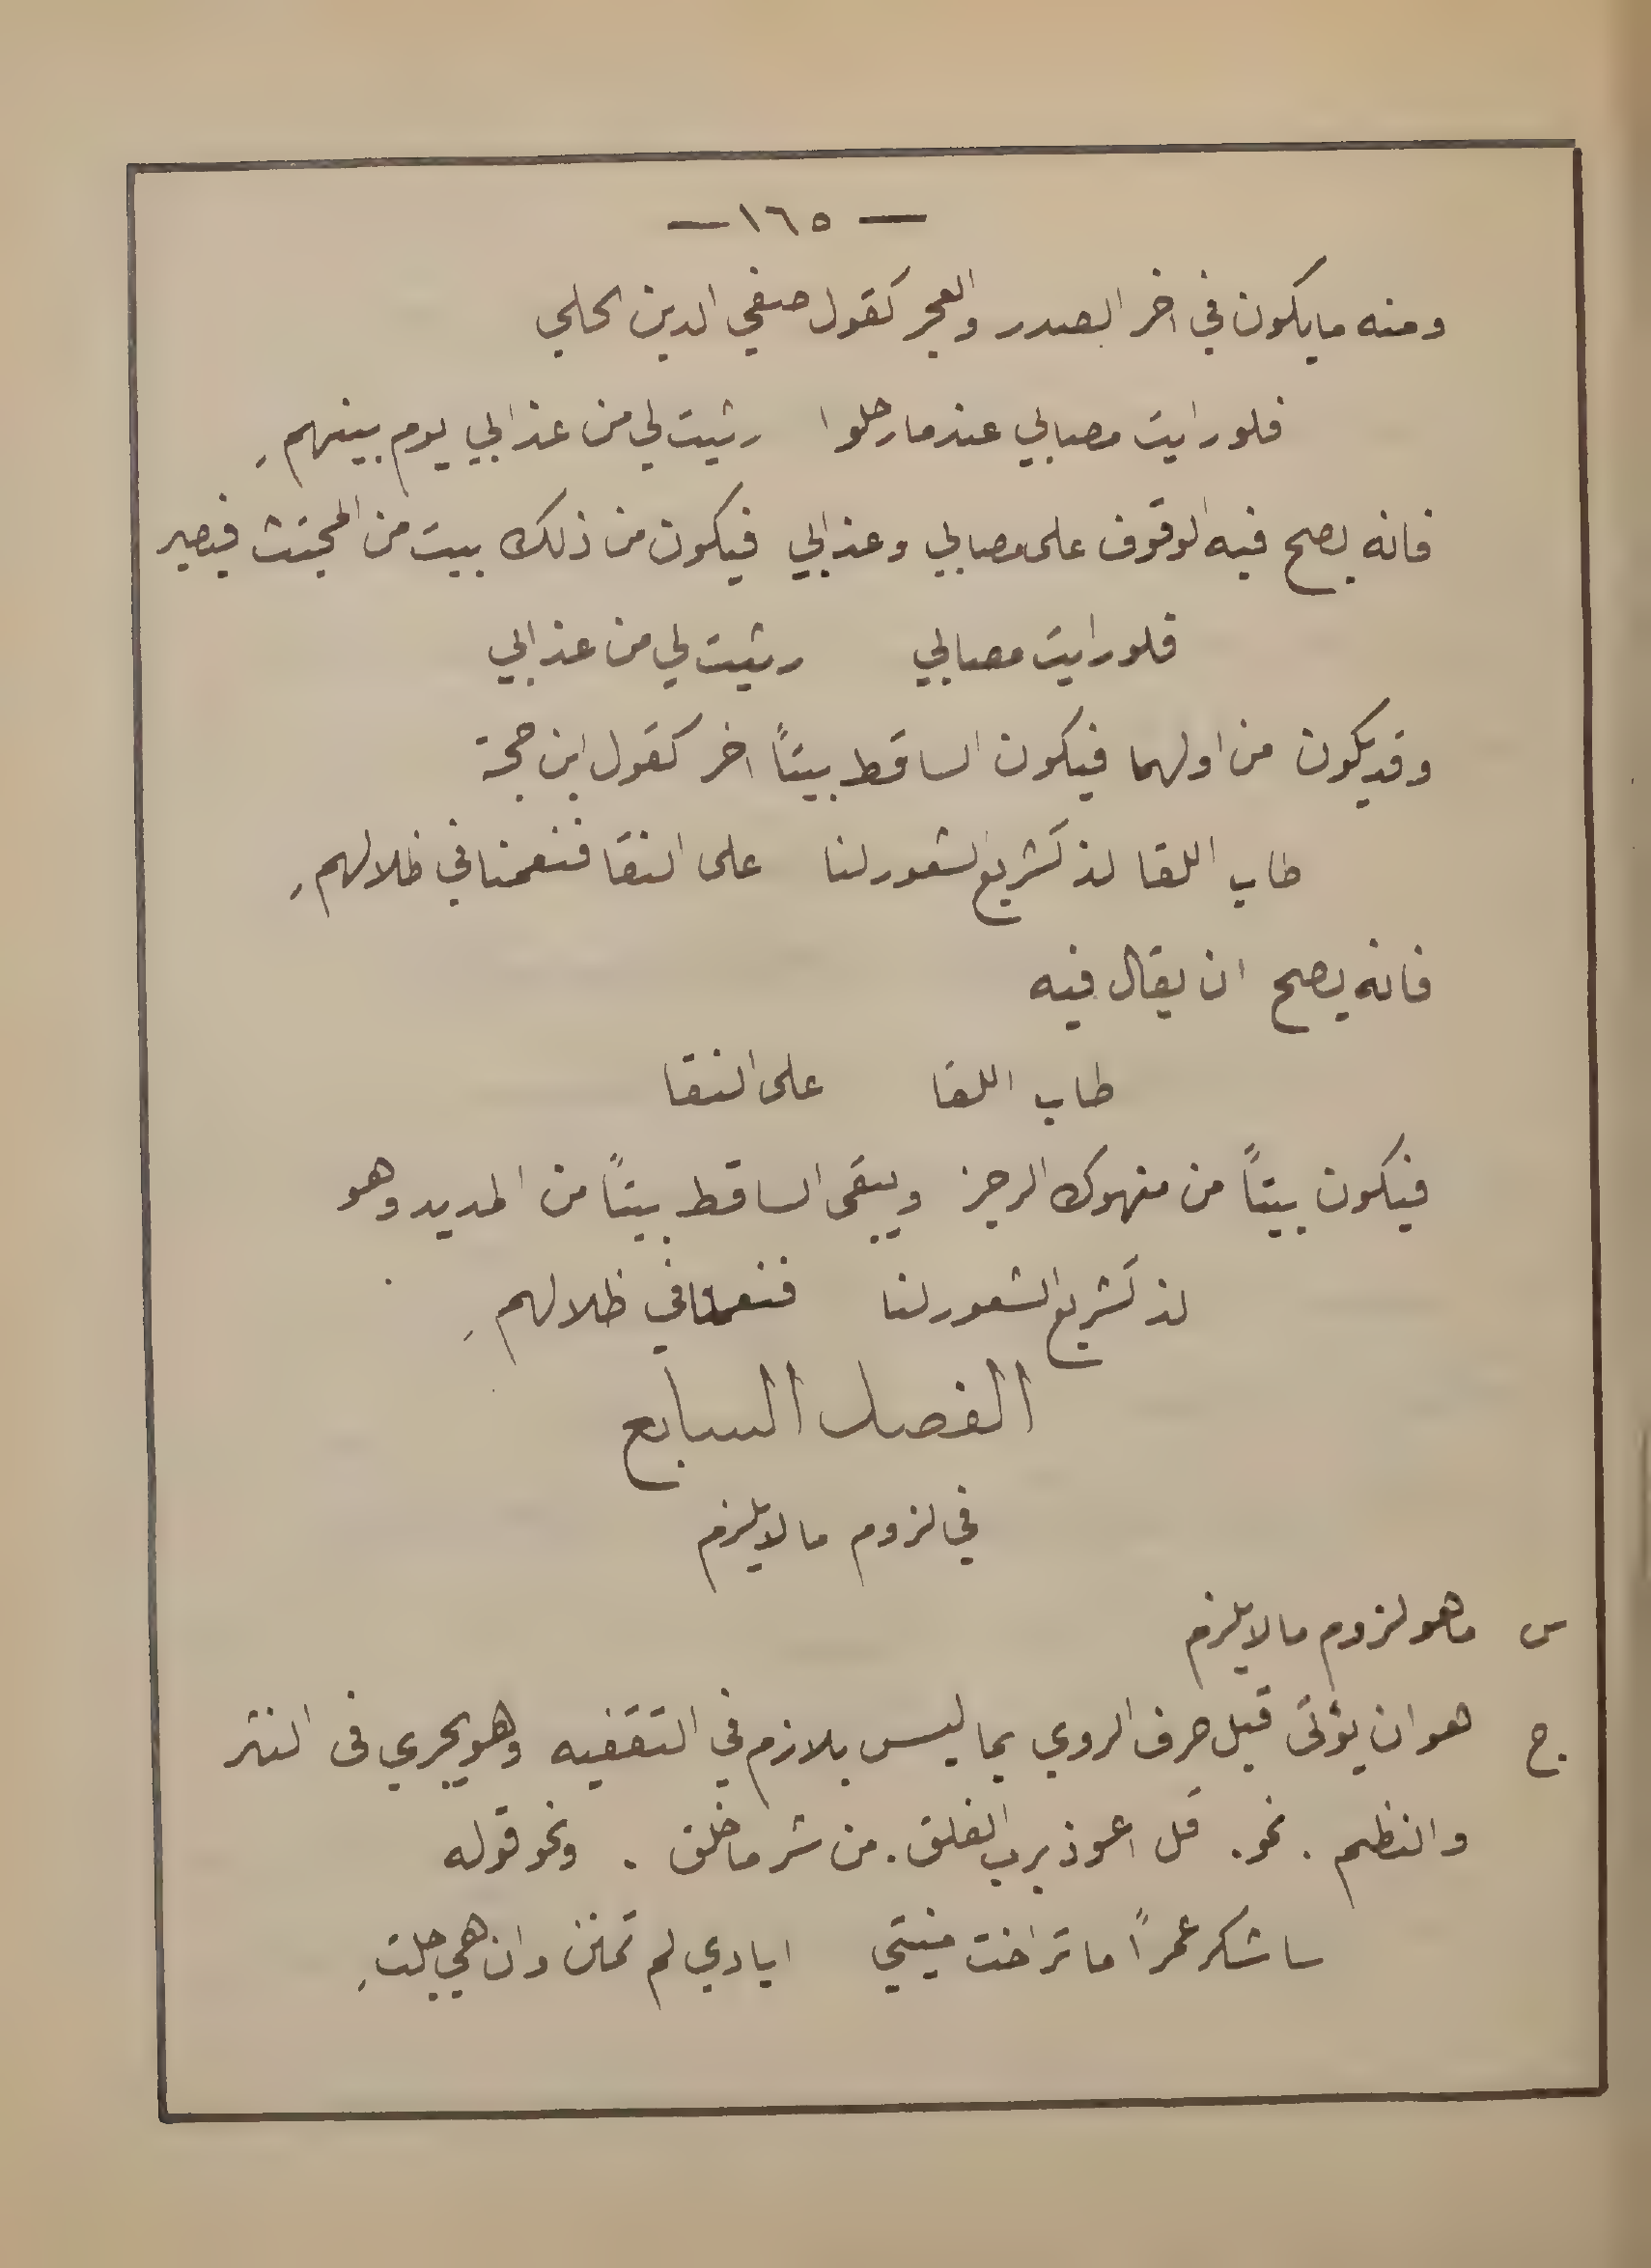 — ١٦٥ —
ومنه ما يكون في اخر الصدر والعجز كقول صفي الدين الحلي
فلو رايت مصابي عندما رحلوا رثيت لي من عذابي يوم بينهمِ
فانه يصح فيه الوقوف على مصابي وعذابي فيكون من ذلك بيت من المجتث فيصير
فلو رايت مصابي رثيت لي من عذابي
وقد يكون من اولهما فيكون الساقط بيتاً اخر كقول ابن حجة
طاب اللقا لذ تشريع الشعور لنا على النقا فنعمنا في ظلالهمِ
فانه يصح ان يقال فيه
طاب اللقا على النقا
فيكون بيتاً من منهوك الرجز ويبقى الساقط بيتاً من المديد وهو
لذ تشريع الشعور لنا فنعمنا في ظلالهمِ
الفصل السابع
في لزوم ما لا يلزم
س ما هو لزوم ما لا يلزم
ج هو ان يؤتى قبل حرف الروي بما ليس بلازم في التقفيه وهو يجري فى النثر
والنظم . نحو . قل اعوذ برب الفلق . من شر ما خلق . ونحو قوله
ساشكر عمراً ما تراخت منيتي ايادي لم تمنن وان هي جلتِ